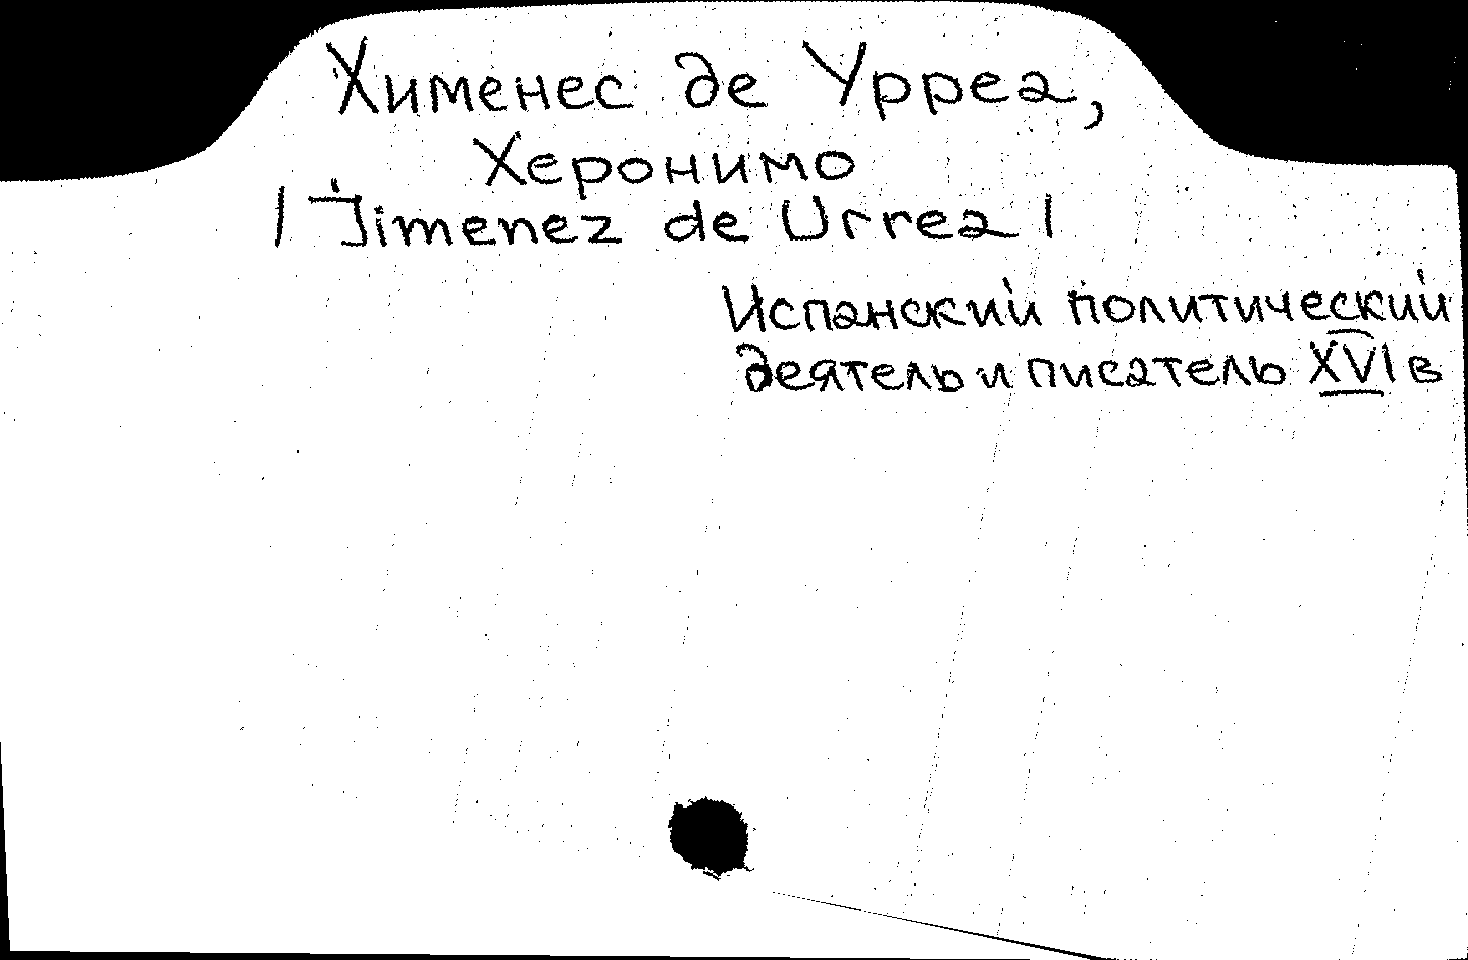 Хименес де Урреа,
Херонимо
/ Jimenez de Urrea /
Испанский политический
деятель и писатель XVI в